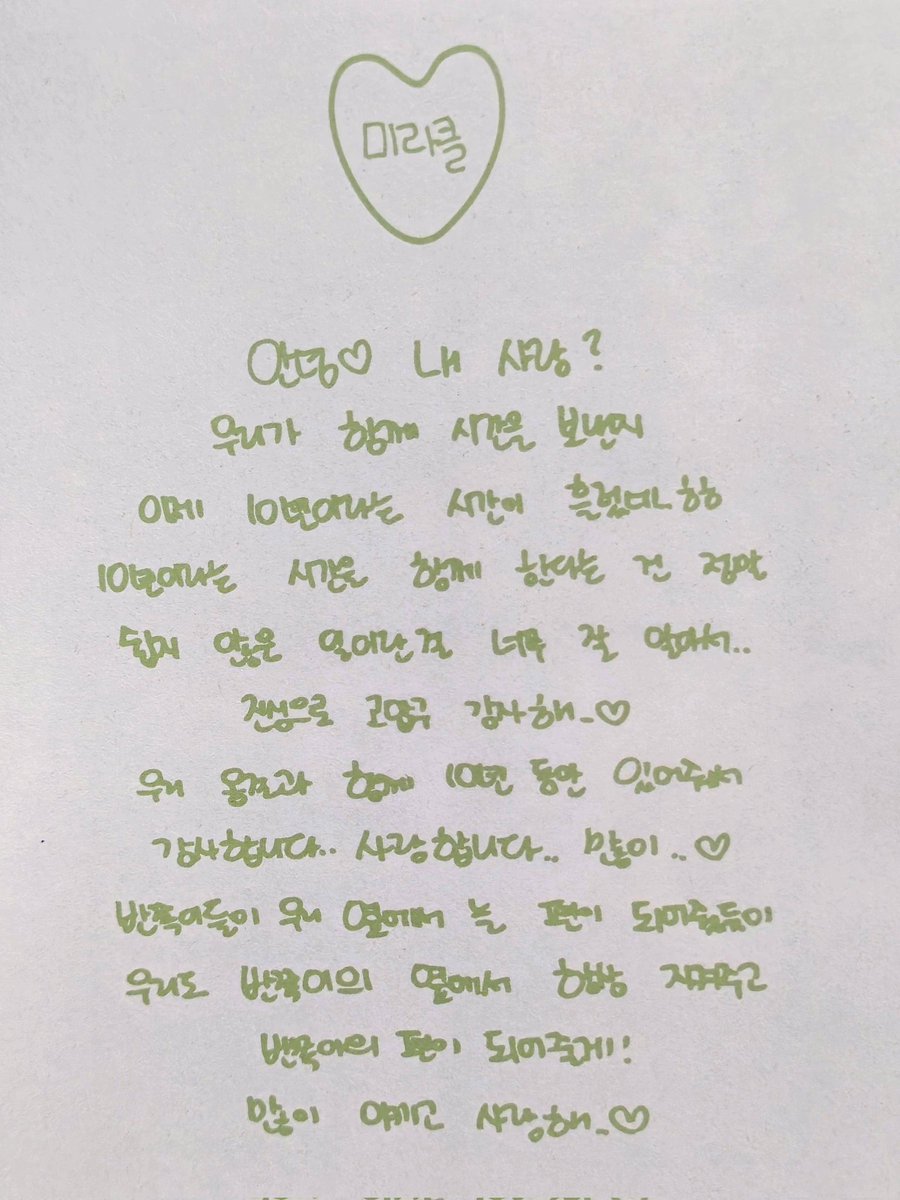 미라클
안녕♡ 내 사랑?
우리가 함께 시간을 보낸지
이제 10년이라는 시간이 흘렀다.. ㅎㅎ
10년이라는 시간을 함께 한다는 건 정말
쉽지 않은 일이란 걸 너무 잘 알아서..
진심으로 고맙구 감사해..♡
우리 옹쪼과 함께 10년 동안 있어줘서
감사합니다.. 사랑합니다.. 많이..♡
반쪽이들이 우리 옆에서 늘 편이 되어줬듯이
우리도 반쪽이의 옆에서 항상 지켜주고
반쪽이의 편이 되어줄게!
많이 아끼고 사랑해..♡